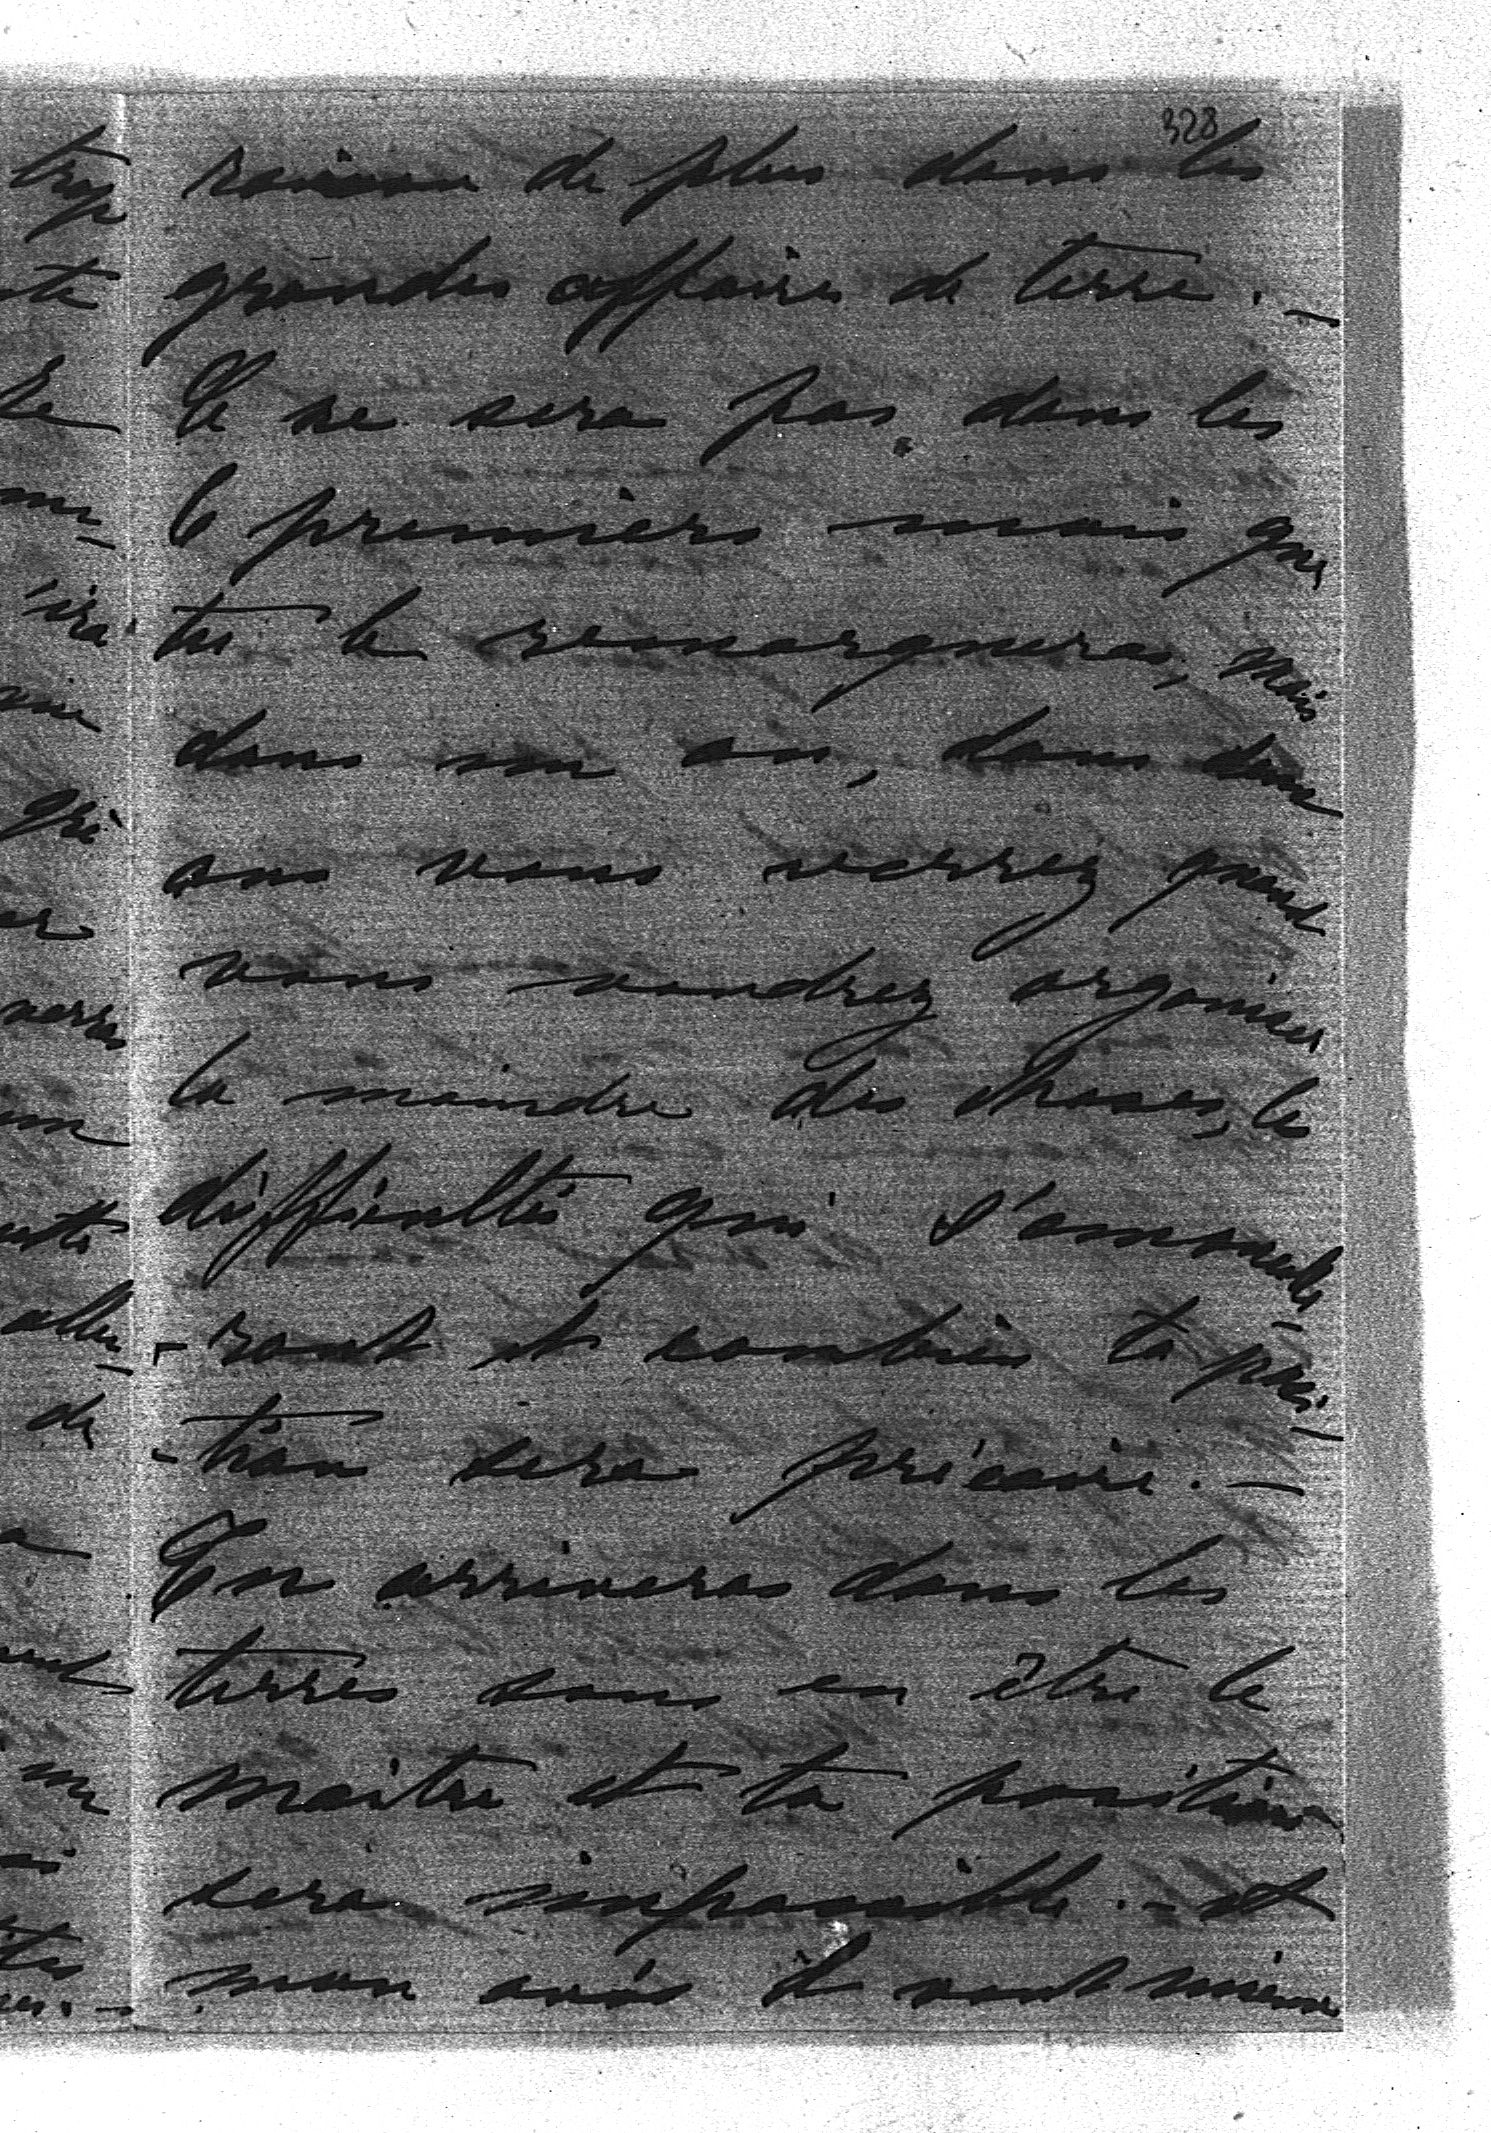 328
raison de plus dans les
grandes affaires de terre. —
Ce ne sera pas dans les
6 premiers mois que
tu le remarqueras, mais
dans un an, dans deux
ans vous verrez quand
vous voudrez organiser
la moindre des choses, les
difficultés qui s'amoncelle-
-ront et combien ta posi-
-tion sera précaire. —
Tu arriveras dans les
terres sans en être le
maître et ta position
sera impossible. — et
mon avis il vaut mieux
trop
de
gré
er
verras
de